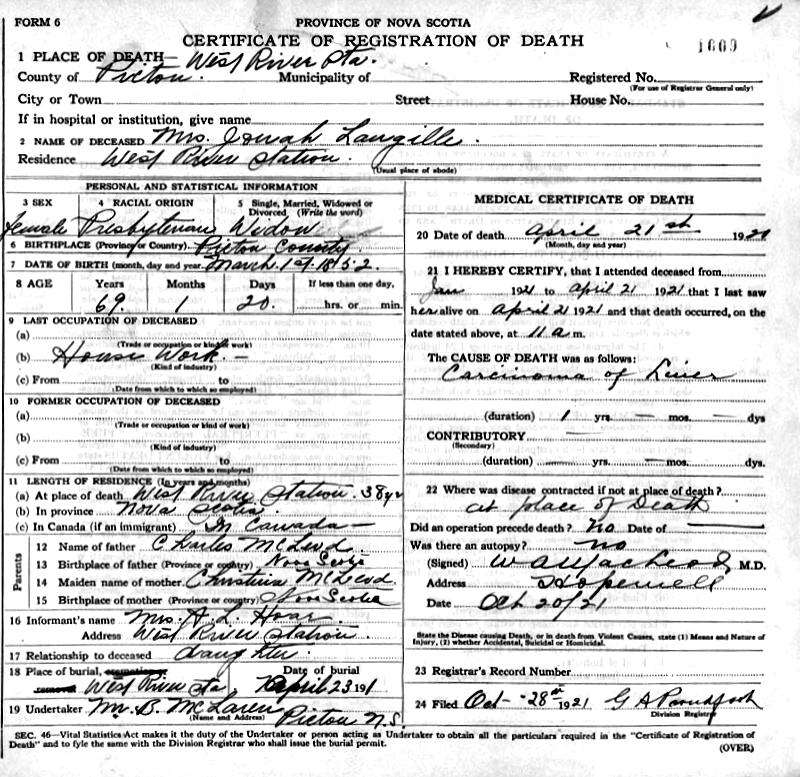 FORM 6
PROVINCE OF NOVA SCOTIA
CERTIFICATE OF REGISTRATION OF DEATH
1669
1 PLACE OF DEATH— West River Sta.
County of Picton. Municipality of
Registered No.
(For use of Registrar General only)
City or Town Street House No.
If in hospital or institution, give name
2 NAME OF DECEASED Mrs. Josiah Langille.
Residence West River Station.
(Usual place of abode)
PERSONAL AND STATISTICAL INFORMATION
3 SEX
4 RACIAL ORIGIN
5 Single, Married, Widowed or Divorced (Write the word)
female Presbyterian Widow
6 BIRTHPLACE (Province or Country) Picton County
7 DATE OF BIRTH (month, day and year) March. 1st. 1852.
8 AGE Years Months Days If less than one day,
69. 1 20. hrs. or min.
9 LAST OCCUPATION OF DECEASED
(a)
(Trade or occupation or kind of work)
(b) House Work. —
(Kind of industry)
(c) From to
(Date from which to which so employed)
10 FORMER OCCUPATION OF DECEASED
(a)
(Trade or occupation or kind of work)
(b)
(Kind of industry)
(c) From to
(Date from which to which so employed)
11 LENGTH OF RESIDENCE (In years and months)
(a) At place of death West River Station. 38 yr
(b) In province Nova Scotia
(c) In Canada (if an immigrant) In Canada —
Parents
12 Name of father Charles McLeod.
13 Birthplace of father (Province or country) Nova Scotia
14 Maiden name of mother Christina McLeod.
15 Birthplace of mother (Province or country) Nova Scotia
16 Informant's name Mrs. A. L. Hoar
Address West River Station.
17 Relationship to deceased daughter.
18 Place of burial, cremation or removal West River Sta
Date of burial April 23 191
19 Undertaker Mr. B. McLaren Picton N.S.
(Name and Address)
MEDICAL CERTIFICATE OF DEATH
20 Date of death April 21st 1921
(Month, day and year)
21 I HEREBY CERTIFY, that I attended deceased from
Jan 1921 to April 21 1921 that I last saw
her alive on April 21 1921 and that death occurred, on the
date stated above, at 11 a m.
The CAUSE OF DEATH was as follows:
Carcinoma of Liver
(duration) 1 yrs. — mos. — dys
CONTRIBUTORY —
(Secondary)
(duration) — yrs. — mos. dys.
22 Where was disease contracted if not at place of death?
at place of Death
Did an operation precede death? No Date of —
Was there an autopsy? no
(Signed) W A MacLeod M.D.
Address Hopewell
Date Oct 20/21
State the Disease causing Death, or in death from Violent Causes, state (1) Means and Nature of Injury, (2) whether Accidental, Suicidal or Homicidal.
23 Registrar's Record Number
24 Filed Oct - 28th 1921 G A Proudfoot
Division Registrar
SEC. 46—Vital Statistics Act makes it the duty of the Undertaker or person acting as Undertaker to obtain all the particulars required in the "Certificate of Registration of
Death" and to fyle the same with the Division Registrar who shall issue the burial permit.
(OVER)